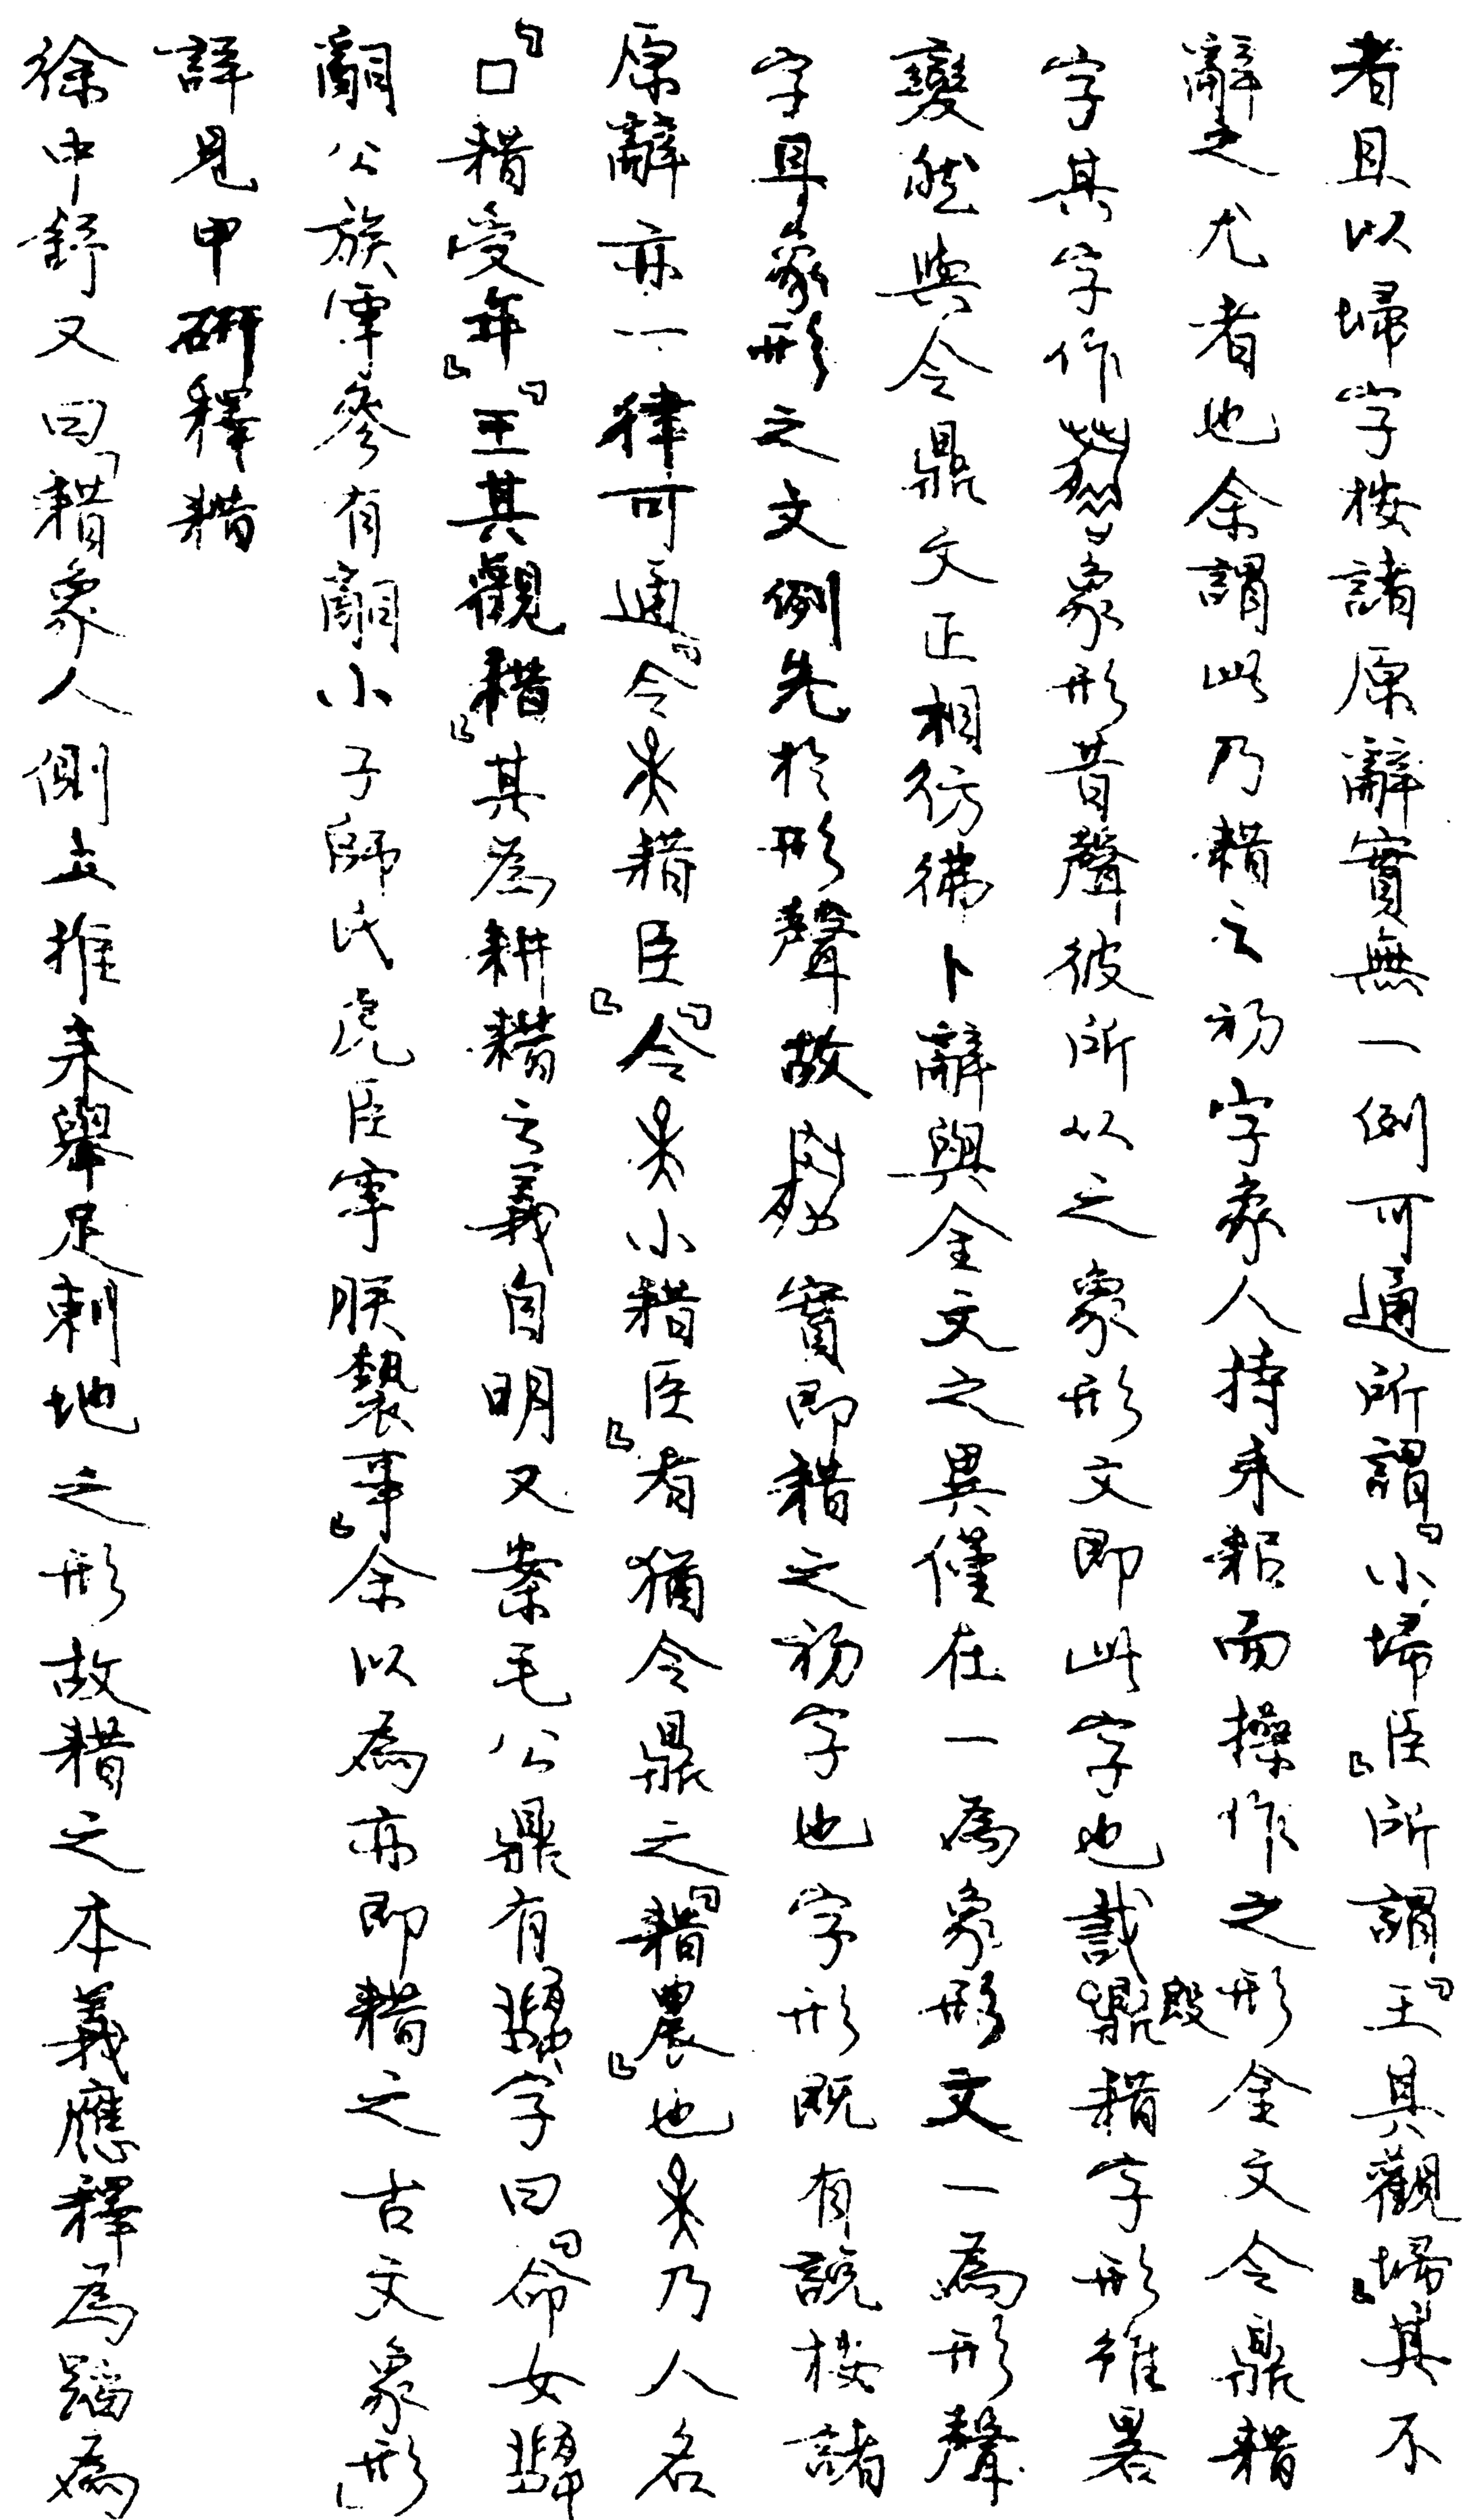 者且以埽字按諸原辭實無一例可通所謂「小埽臣」所謂「王其觀埽」其不
辭之尤者也余謂此乃耤之初字象人持耒耜而操作之形金文令鼎耤
字其字作象形昔聲彼所以之象形文即此字也𢦚鼎𣪘耤字形雖畧
變然與令鼎文正相彷彿卜辭與金文之異僅在一為象形文一為形聲
字耳象形之文例先於形聲故實即耤之初字也字形既有説按諸
原辭亦一律可通「令耤臣」「令小耤臣」者猶令鼎之「耤農」也乃人名
「□耤受年」「王其觀耤」其為耕耤之義自明又案毛公鼎有字曰「命女
𤔲公族雩參有𤔲小子師氏虎臣雩朕褻事」余以為亦即耤之古文象形」
詳見甲研釋耤
徐中舒又曰「耤象人側立推耒舉足刺地之形故耤之本義應釋為蹈為